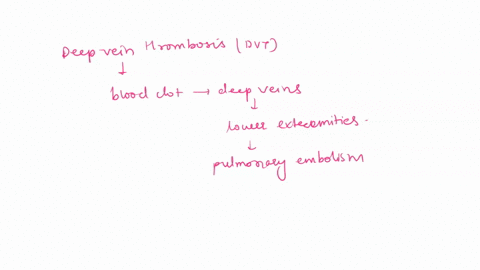 Deep vein thrombosis (DVT)
↓
blood clot → deep veins
↓
lower extremities.
↓
pulmonary embolism